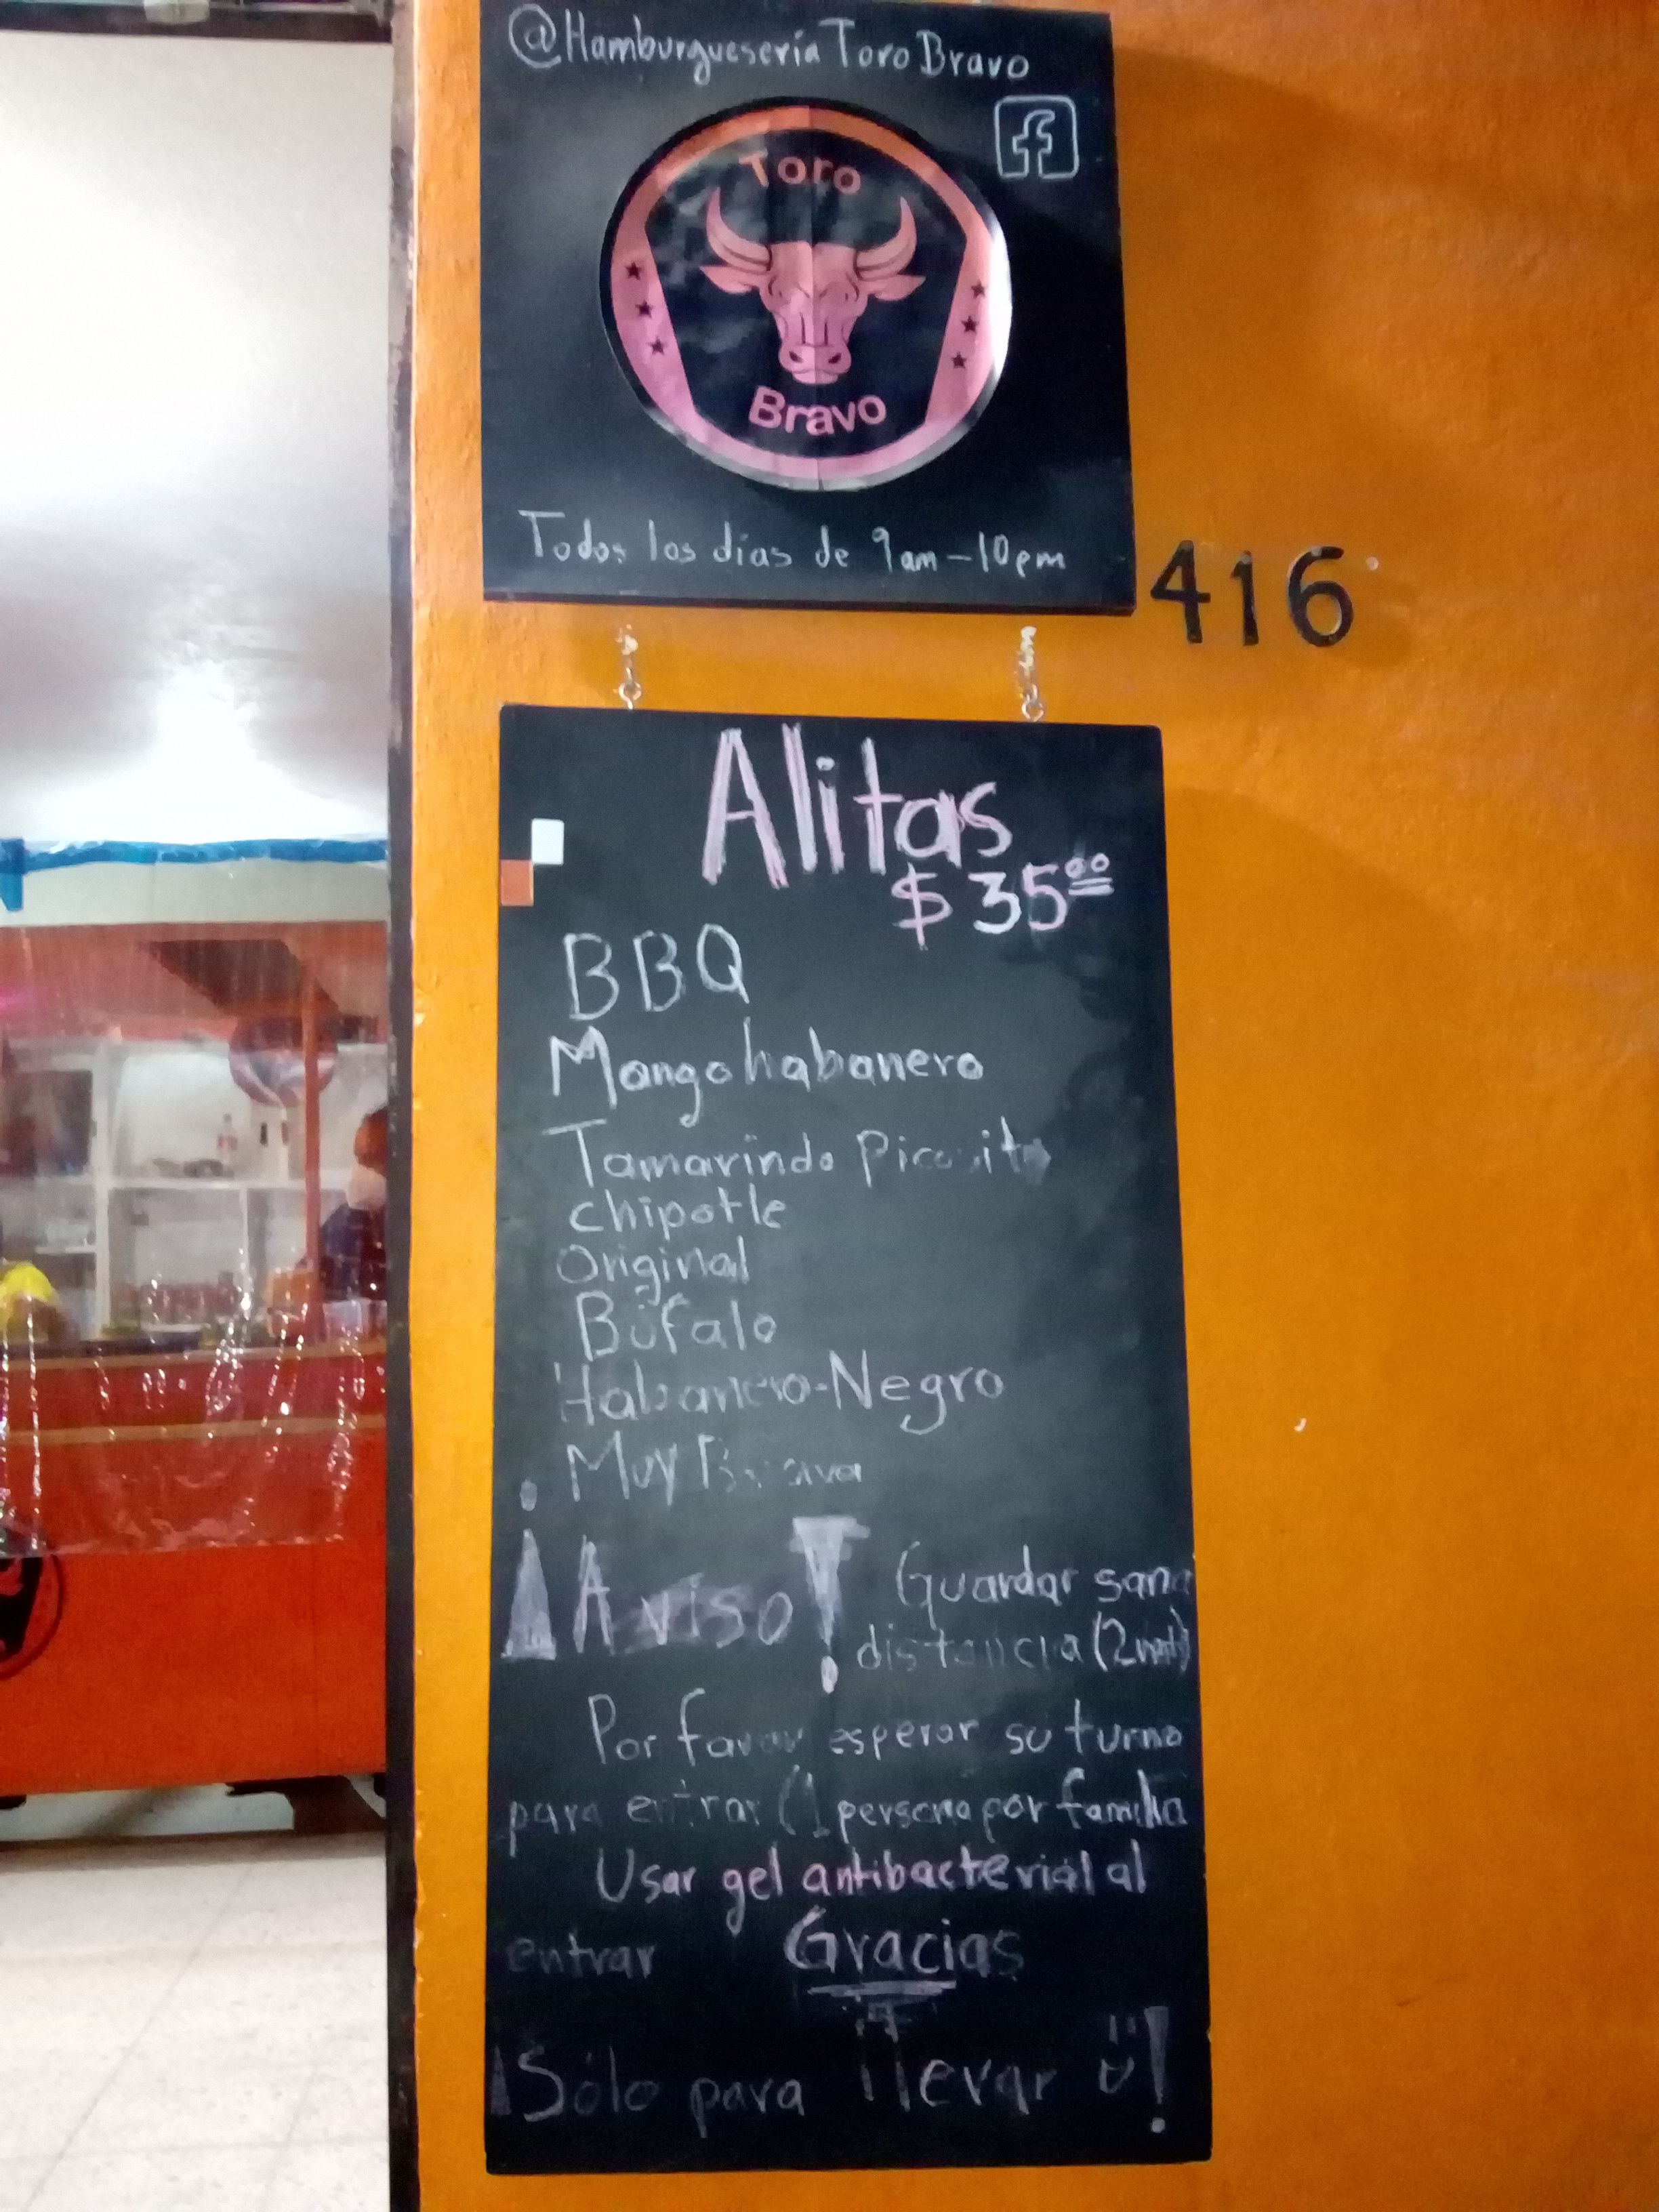 @Hamburguesería Toro Bravo
Toro
Bravo
Todos los días de 9am-10pm
416
Alitas
$35.00
BBQ
Mango habanero
Tamarindo Picosito
chipotle
Original
Búfalo
Habanero-Negro
Muy Brava
¡Aviso! Guardar sana
distancia (2mt)
Por favor esperar su turno
para entrar (1 persona por familia
Usar gel antibacterial al
entrar Gracias
¡Sólo para llevar !